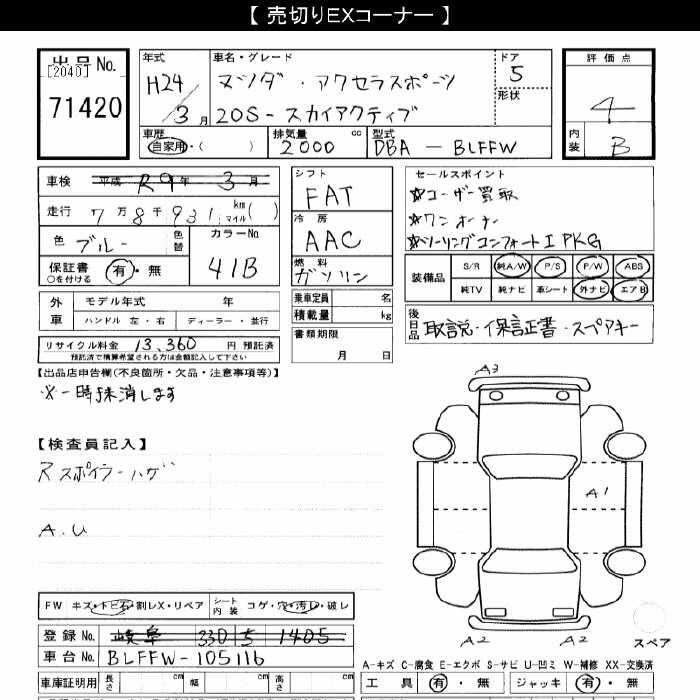 【 売切りEXコーナー 】
出品No.
[2040]
71420
年式
H24/3月
車名・グレード
マツダ・アクセラスポーツ
20S-スカイアクティブ
ドア
5
形状
評価点
4
内装
B
車歴
自家用・( )
排気量 cc
2000
型式
DBA-BLFFW
車検 平成 R9年 3月
走行 7万8千931 km マイル( )
色 ブルー
色替
カラーNo.
41B
保証書 有・無
○を付ける
外車
モデル年式 年
ハンドル 左・右 ディーラー・並行
リサイクル料金 13,360 円 預託済
預託済で積算希望される方は金額記入して下さい
シフト
FAT
冷房
AAC
燃料
ガソリン
乗車定員 名
積載量 kg
書類期限
月 日
セールスポイント
☆ユーザー買取
☆ワンオーナー
☆ツーリングコンフォートI PKG
装備品
S/R 純A/W P/S P/W ABS
純TV 純ナビ 車シート 外ナビ エアB
後日品
取説・保証書・スペアキー
【出品店申告欄(不良箇所・欠品・注意事項等)】
※一時抹消します
【検査員記入】
Rスポイラーハゲ
A.U
A3
A1
A2 A2
スペア
FW キズ・トビ石・割レX・リペア
シート内装 コゲ・穴・汚レ・破レ
登録No. 岐阜 330 5 1405
車台No. BLFFW-105116
車庫証明用 長さ cm 幅 cm 高さ cm
A-キズ C-腐食 E-エクボ S-サビ U-凹ミ W-補修 XX-交換済
工具 有・無 ジャッキ 有・無